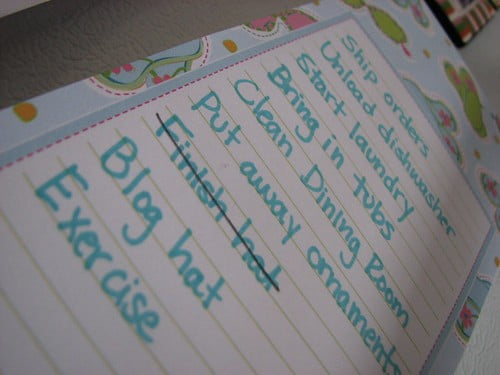 Ship orders
Unload dishwasher
Start laundry
Bring in tubs
Clean Dining Room
Put away ornaments
Finish hat
Blog hat
Exercise